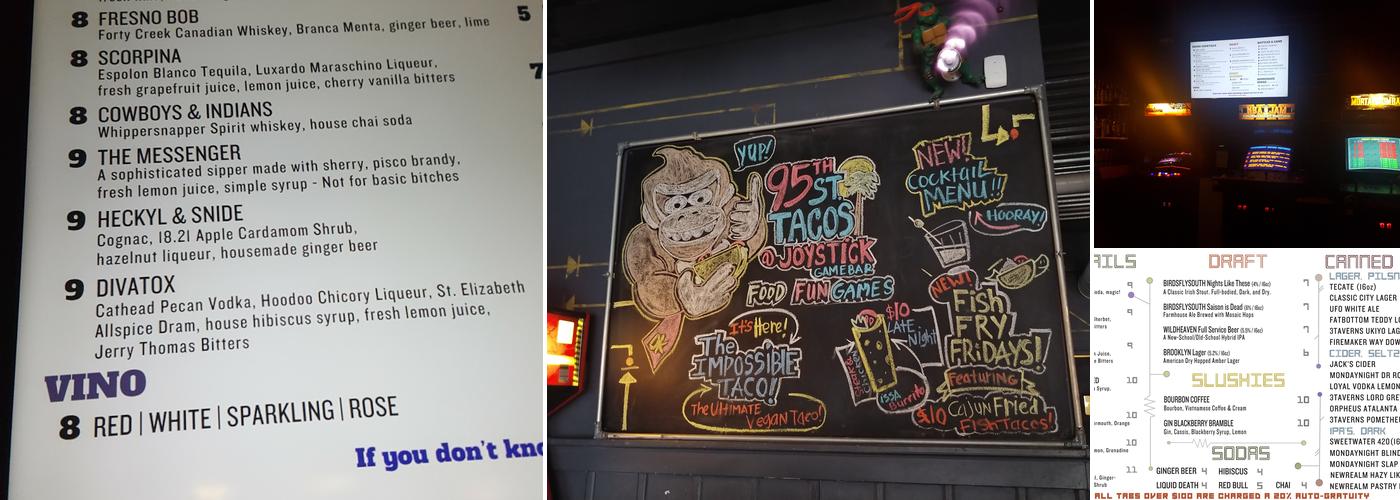 8 FRESNO BOB
Forty Creek Canadian Whiskey, Branca Menta, ginger beer, lime
5
8 SCORPINA
Espolon Blanco Tequila, Luxardo Maraschino Liqueur,
fresh grapefruit juice, lemon juice, cherry vanilla bitters
7
8 COWBOYS & INDIANS
Whippersnapper Spirit whiskey, house chai soda
9 THE MESSENGER
A sophisticated sipper made with sherry, pisco brandy,
fresh lemon juice, simple syrup - Not for basic bitches
9 HECKYL & SNIDE
Cognac, 18.21 Apple Cardamom Shrub,
hazelnut liqueur, housemade ginger beer
9 DIVATOX
Cathead Pecan Vodka, Hoodoo Chicory Liqueur, St. Elizabeth
Allspice Dram, house hibiscus syrup, fresh lemon juice,
Jerry Thomas Bitters
VINO
8 RED | WHITE | SPARKLING | ROSE
If you don't kno
YUP!
95TH
ST.
TACOS
@ JOYSTICK
GAMEBAR
FOOD FUN GAMES
It's Here!
The
IMPOSSIBLE
TACO!
The ULTIMATE
VEGAN Taco!
NEW!
COCKTAIL
MENU!!
HOORAY!
$10
LATE
Night
Burrito
NEW!
FISH
FRY
FRiDAYS!
Featuring
$10 CAJUN FRied
FISH TACOS!
NBA JAM
AILS
9
nda, magic!
9
herbet,
itters
9
k Juice,
e Bitters
10
10
rmouth, Orange
10
mon, Grenadine
11
l, Ginger-
Shrub
DRAFT
BIRDSFLYSOUTH Nights Like These (4% / 16oz) 7
A Classic Irish Stout. Full-bodied, Dark, and Dry.
BIRDSFLYSOUTH Saison is Dead (6% / 16oz) 7
Farmhouse Ale Brewed with Mosaic Hops
WILDHEAVEN Full Service Beer (5.5% / 16oz) 7
A New-School/Old-School Hybrid IPA
BROOKLYN Lager (5.2% / 16oz) 6
American Dry Hopped Amber Lager
SLUSHIES
BOURBON COFFEE 10
Bourbon, Vietnamese Coffee & Cream
GIN BLACKBERRY BRAMBLE 10
Gin, Cassis, Blackberry Syrup, Lemon
SODAS
GINGER BEER 4 HIBISCUS 4
LIQUID DEATH 4 RED BULL 5 CHAI 4
CANNED
LAGER, PILSN
TECATE (16oz)
CLASSIC CITY LAGER
UFO WHITE ALE
FATBOTTOM TEDDY LO
3TAVERNS UKIYO LAG
FIREMAKER WAY DOW
CIDER, SELTZ
JACK'S CIDER
MONDAYNIGHT DR RO
LOYAL VODKA LEMON
3TAVERNS LORD GRE
ORPHEUS ATALANTA
3TAVERNS POMETHE
IPA'S, DARK
SWEETWATER 420(16
MONDAYNIGHT BLIND
MONDAYNIGHT SLAP
NEWREALM HAZY LIK
NEWREALM PASTRY
ALL TABS OVER $100 ARE CHARGED A 20% AUTO-GRATUITY